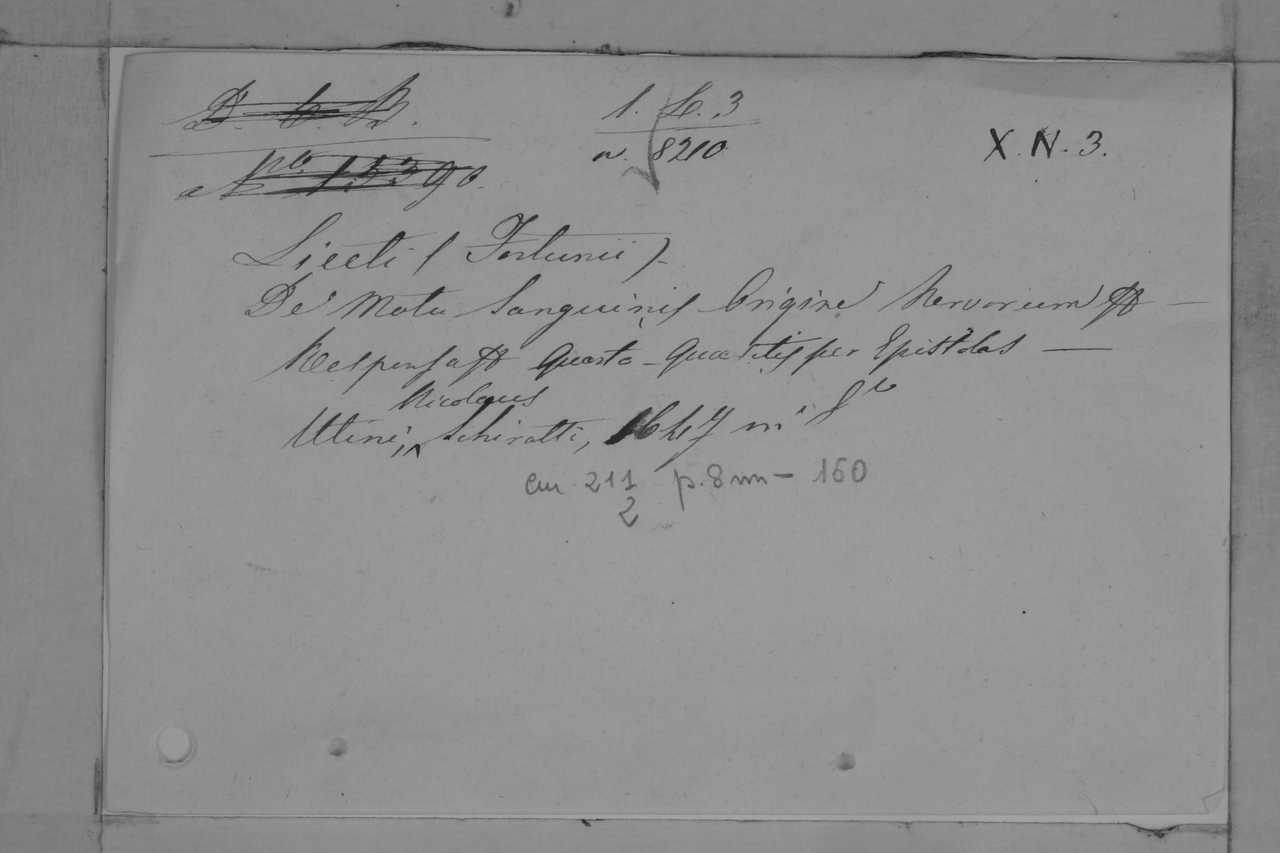 D. C. B.
No. 15390.
1. L. 3
n. 8210
X. N. 3.
Liceti (Fortunii).
De Motu Sanguinis Origine Nervorum
Responsa Quarto-Quæsitis per Epistolas —
Utini, Nicolaus Schiratti, 1647 in 8º
cm 21 1/2 p. 8 nn - 160